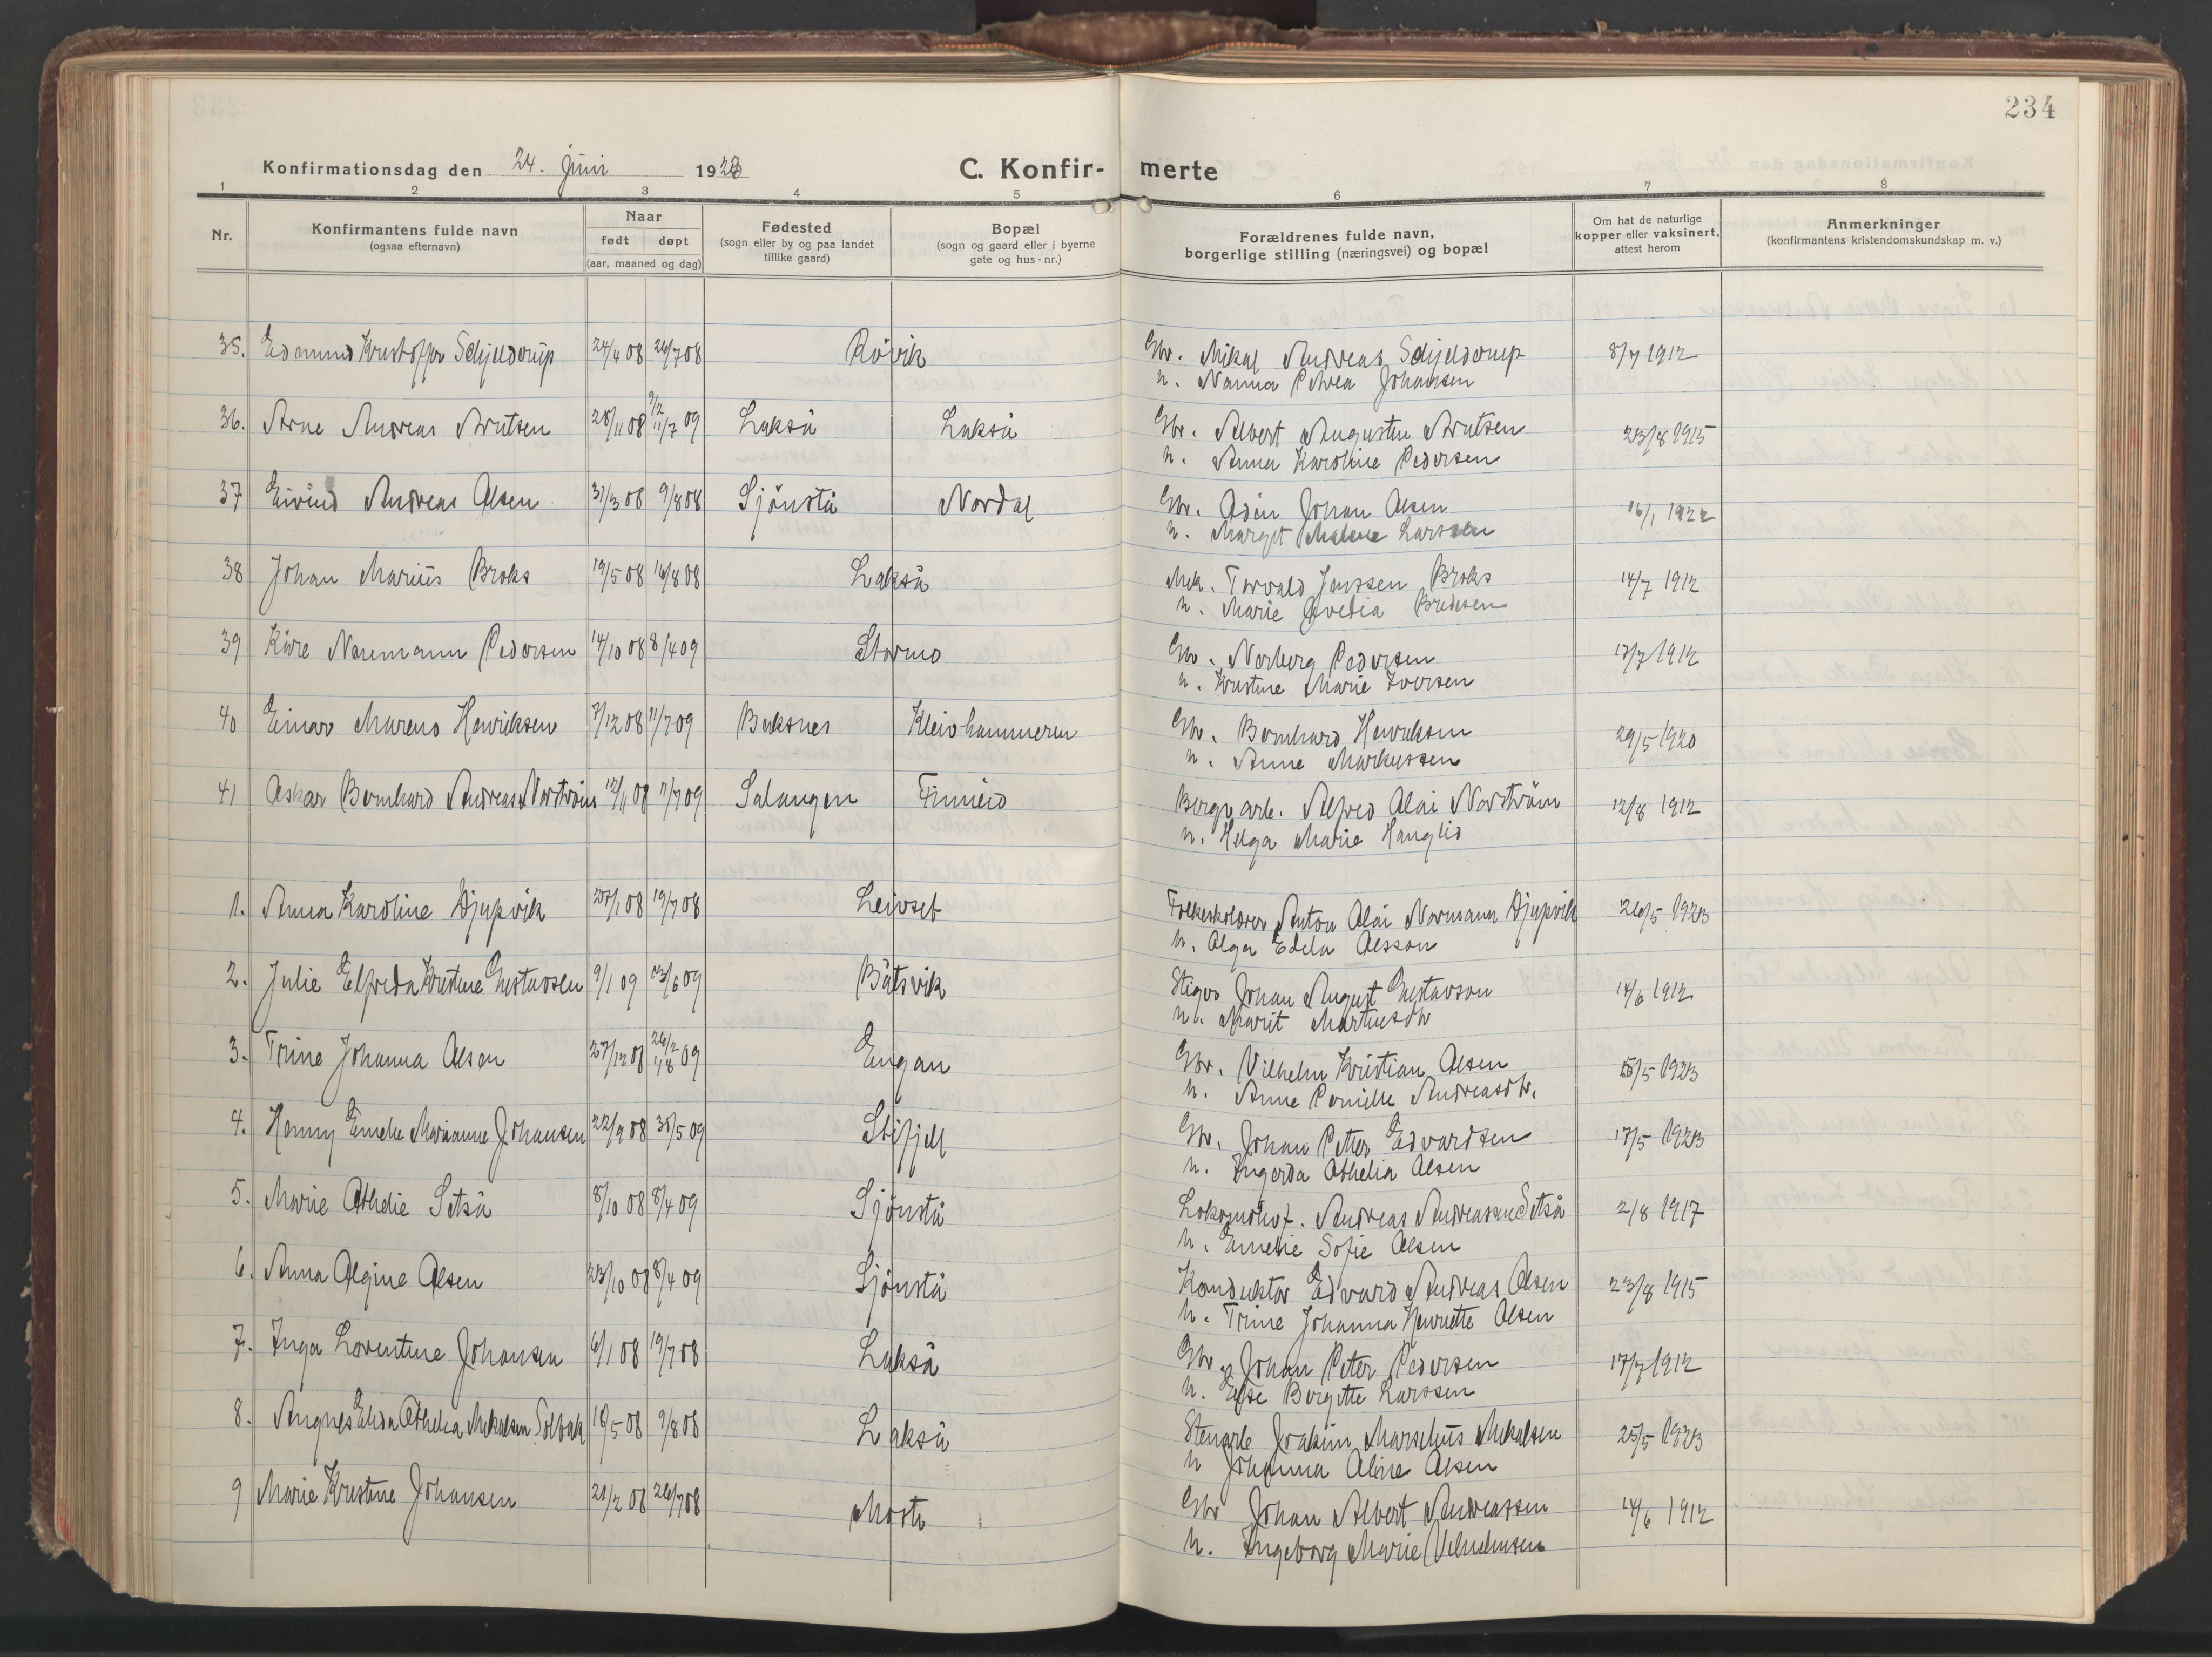 234
Konfirmationsdag den 24. Juni 1923
C. Konfirmerte
1 2 3 4 5 6 7 8
Nr.
Konfirmantens fulde navn
(ogsaa efternavn)
Naar
født døpt
(aar, maaned og dag)
Fødested
(sogn eller by og paa landet
tillike gaard)
Bopæl
(sogn og gaard eller i byerne
gate og hus-nr.)
Forældrenes fulde navn,
borgerlige stilling (næringsvei) og bopæl
Om hat de naturlige
kopper eller vaksinert,
attest herom
Anmerkninger
(konfirmantens kristendomskundskap m. v.)
35. Edmund Kristoffer Schjelderup 24/4 08 26/7 08 Røvik Gbr. Mikal Andreas Schjelderup 8/7 1912
h. Nanna Petrea Johansen
36. Arne Andreas Arntsen 28/11 08 9/2 11/7 09 Lakså Lakså Gbr. Albert Augustin Arntsen 23/8 1915
h. Anna Karoline Pedersen
37 Eivind Andreas Olsen 31/3 08 9/8 08 Sjønstå Nordal Gbr. Odin Johan Olsen 16/1 1922
h. Margit Malene Larssen
38 Johan Marius Broks 19/5 08 16/8 08 Lakså Mek. Torvald Jenssen Broks 14/7 1912
h. Marie Ovedia
39 Kåre Normann Pedersen 14/10 08 8/4 09 Stormo Gbr. Norberg Pedersen 17/7 1912
h. Kristine Marie Iversen
40 Einar Mareno Henriksen 7/12 08 11/7 09 Buksnes Kleivhammeren Gbr. Bernhard Henriksen 29/5 1920
h. Anne Markussen
41 Oskar Bernhard Andreas Norström 12/11 08 11/7 09 Salangen Finneid Bergv. arb. Alfred Olai Norström 12/8 1912
h. Helga Marie Hauglid
1. Anna Karoline Djupvik 27/1 08 19/7 08 Leivset Folkeskolærer Anton Olai Normann Djupvik 26/5 1923
h. Olga Edela Olsson
2. Julie Elfreda Kristine Gustavsen 9/1 09 13/6 09 Båtsvik Stigo Johan August Gustavson 14/6 1912
h. Marit Martinsdtr
3. Trine Johanna Olsen 27/12 08 26/2 1/8 09 Engan Gbr. Vilhelm Kristian Olsen 15/5 1923
h. Anne Pernille Andreasdtr.
4. Henny Emelie Marianne Johansen 22/9 08 31/5 09 Stifjell Gbr. Johan Peter Edvardsen 17/5 1923
h. Ingerda Othelia Olsen
5. Marie Othelie Setså 8/10 08 8/4 09 Sjønstå Lokomotivf. Andreas Andreassen Setså 2/8 1917
h. Emelie Sofie Olsen
6. Anna Olgine Olsen 23/10 08 8/4 09 Sjønstå Konduktør Edvard Andreas Olsen 23/8 1915
h. Trine Johanna Henriette Olsen
7. Inga Lorentine Johansen 6/1 08 19/7 08 Lakså Gbr Johan Peter Pedersen 17/7 1912
h. Else Bergitte Larssen
8. Angnes Elida Othelia Mikalsen Solbak 18/5 08 9/8 08 Lakså Stenarb Joakim Marselius Mikalsen 25/5 1923
h Johanna Oline Olsen
9 Marie Kristine Johansen 21/2 08 26/7 08 Mosti Gbr Johan Albert Andreassen 14/6 1912
h. Ingeborg Marie Vilhelmsen